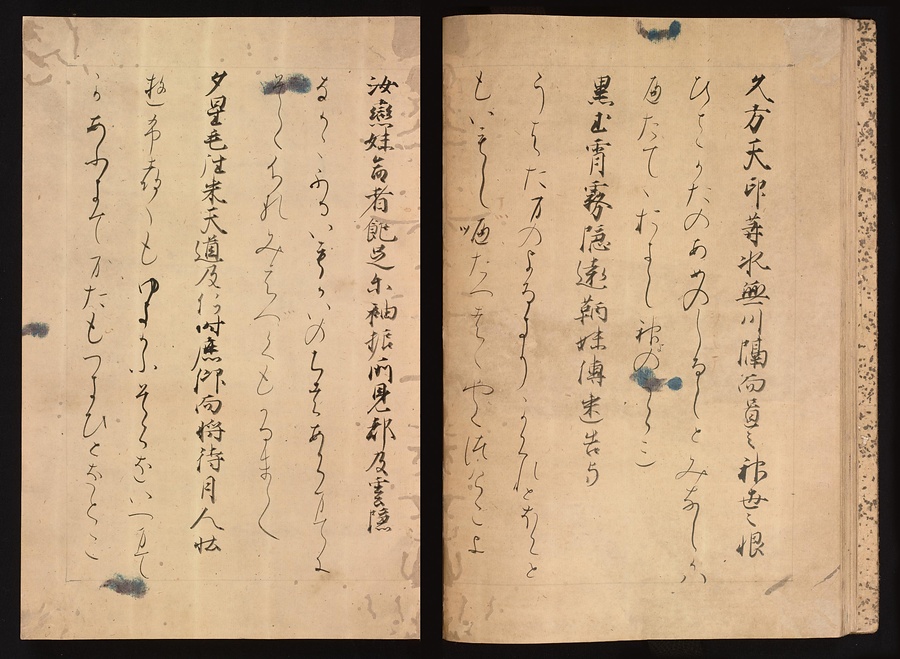 久方天印等水無川隔而置之神世之恨
ひさかたのあめのしるしとみなしかは
へたてゝおきし神の
黒玉宵霧隠遠鞆妹傳速告与
うはた万のよるきりかくれとほくと
もいもしつたへはやくつけこよ
汝戀妹命者飽足尓袖振所見都及雲隠
なかこふるいもかいのちはあくまてに
そてふれみえつくもかくるまて
夕星毛徃来天道及何時鹿仰而将待月人壮
遊布都ゝもかよふそらをいつまて
かあふきて万たむつきひとをとこ